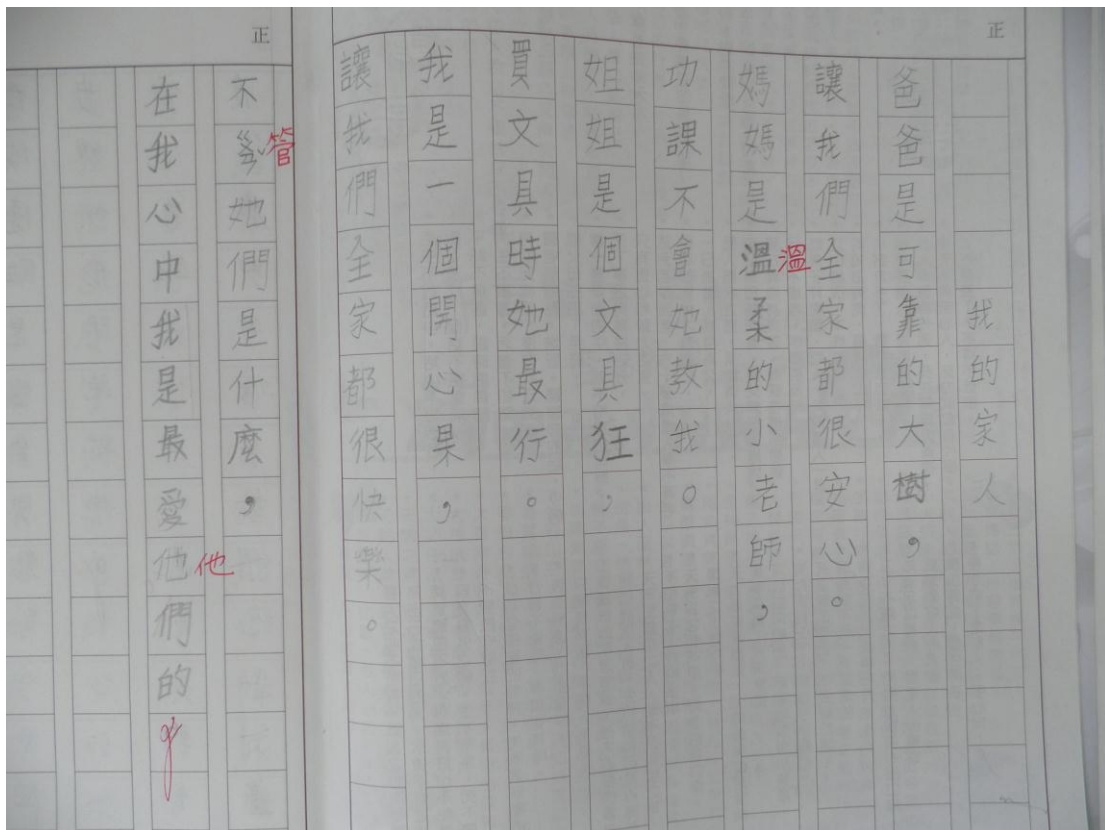 正
我的家人
爸爸是可靠的大樹，
讓我們全家都很安心。
媽媽是溫柔的小老師，
溫
功課不會她教我。
姐姐是個文具狂，
買文具時她最行。
我是一個開心果，
讓我們全家都很快樂。
正
不她們是什麼，
管
在我心中我是最愛他們的
他